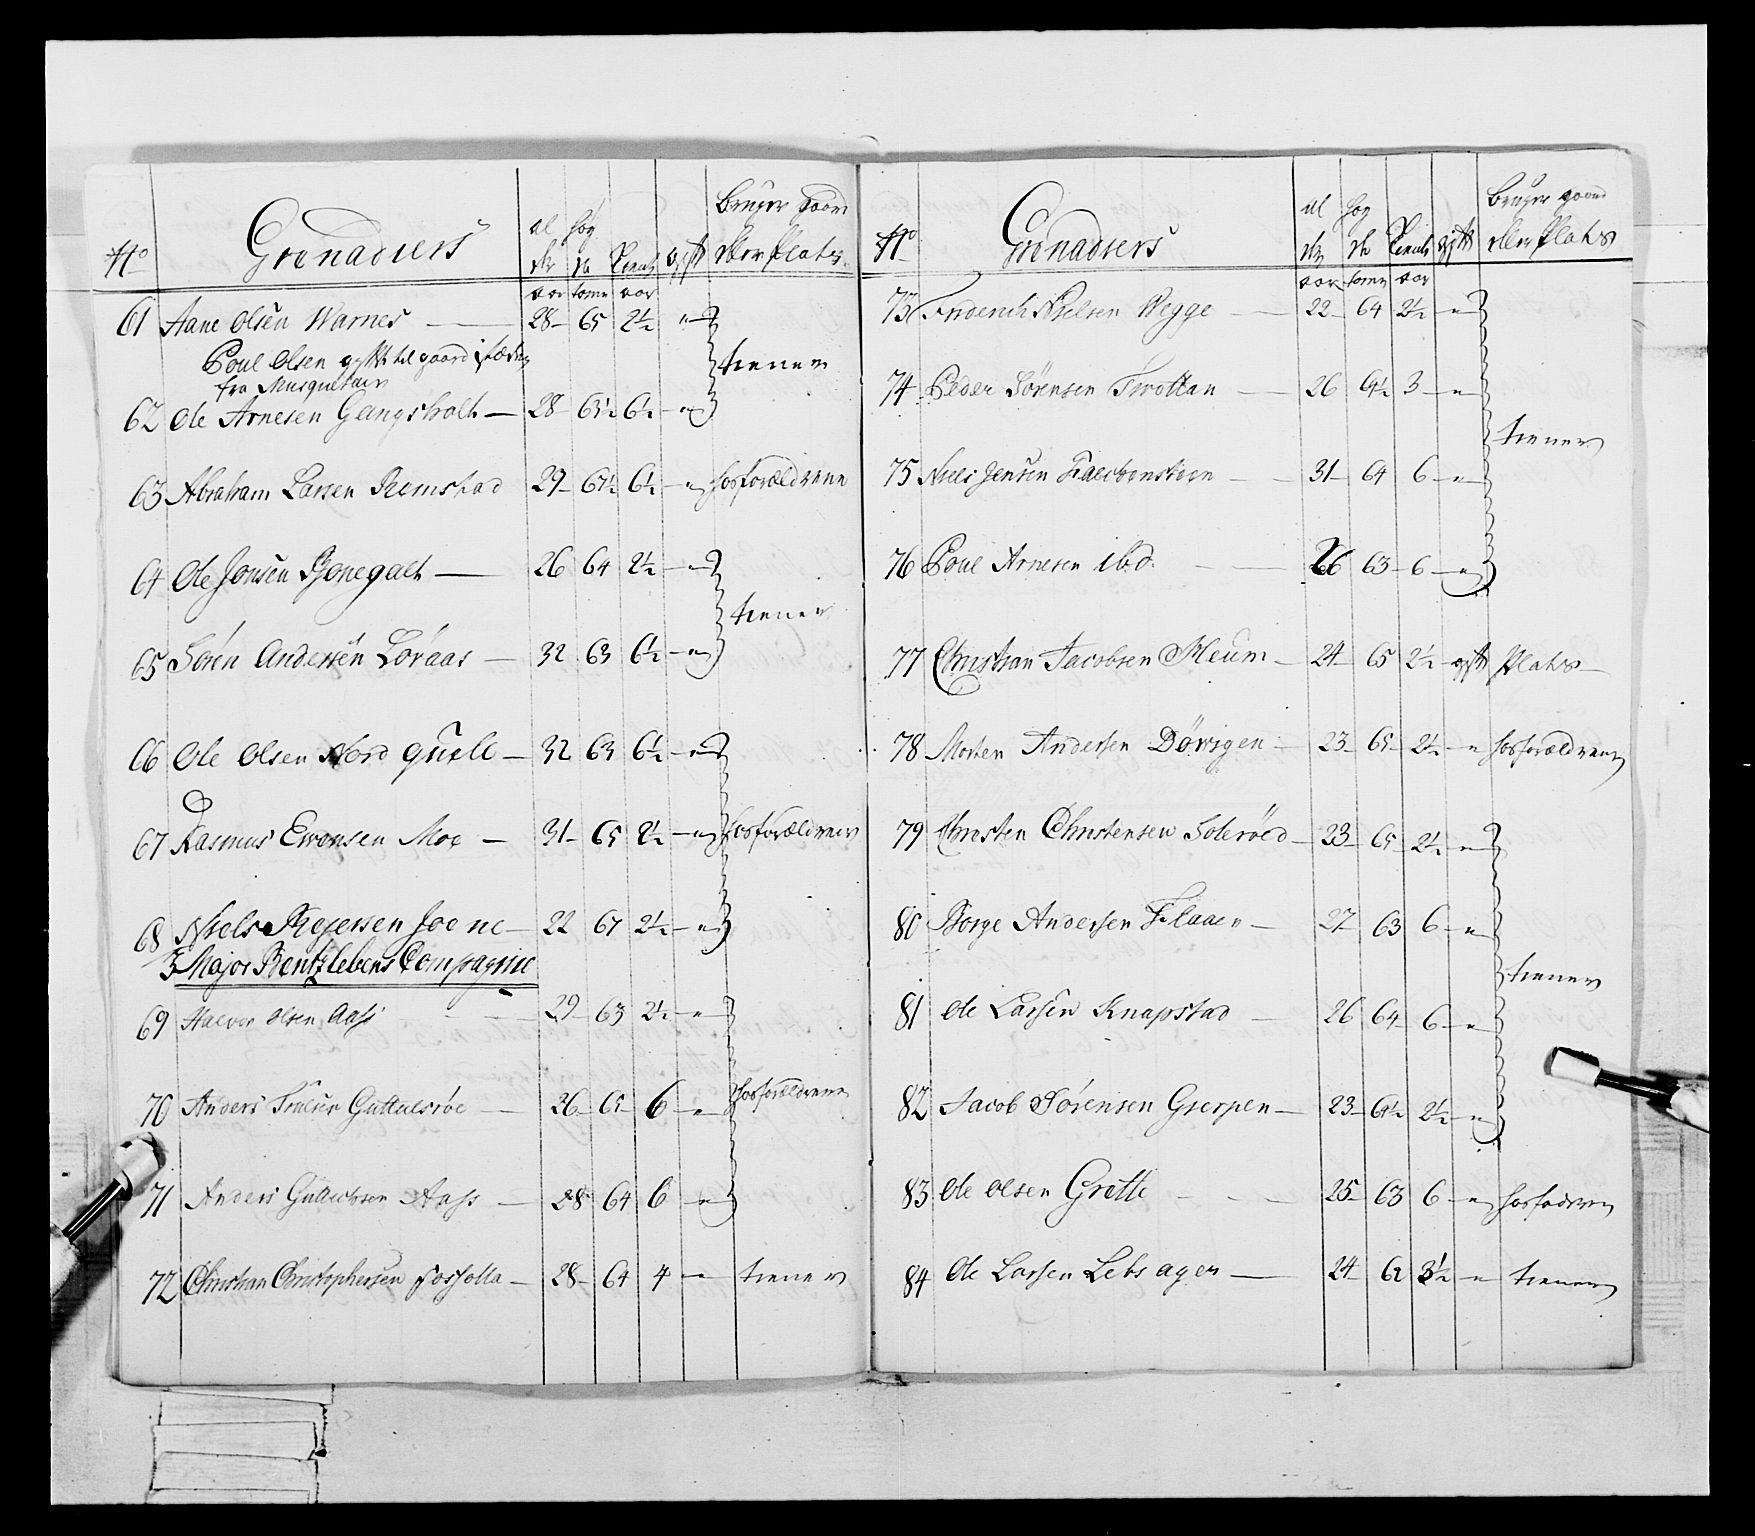 No Grenadiers al der hög de tienst gift bruger gaard eller Plads
aar tome aar
61 Aane Olsen Warnes — 28 65 2½ "
Poul Olsen gift til gaard i steden
fra Musqueteer
tiener
62 Ole Arnesen Gangsholt — 28 63½ 6½ "
63 Abraham Larsen Remstad 29 67½ 6½ " hos forældrene
64 Ole Jonsen Bonegalt — 26 64 2½ "
tiener
65 Sören Andersen Loraas — 32 63 6½ "
66 Ole Olsen Nord quelle — 32 63 6½ "
67 Rasmus Evensen Moe — 31 65 2½ " hos forældrene
68 Niels Rejersen Joene — 22 67 2½ "
3 Major Rentzlebens Compagnie
69 Halvor Olsen Aass 29 63 2½ "
70 Anders Truelsen Guttulsröe — 26 65 6 " hos forældrene
71 Anders Gullichsen Aass — 28 64 6 "
72 Christian Christophersen Fossolla — 28 64 4 " tiener
No Grenadiers al der hög de tienst gift bruger gaard eller Plads
aar tome aar
73 Friderich Nielsen Wegge — 22 64 2½ "
74 Peder Sörensen Trottan — 26 64½ 3 "
tiener
75 Niels Jensen — 31 64 6 "
76 Poul Arnesen ibd. — 26 63 6 "
77 Christian Jacobsen Meum — 24 65 2½ gift Plads
78 Morten Andersen Dörsgen — 23 65 2½ " hos forældrene
79 Christen Christensen Soleröed — 23 65 2½ "
80 Borge Andersen Flaaen — 27 63 6 "
tiener
81 Ole Larsen Knapstad — 26 64 6 "
82 Jacob Sörensen Gserpen — 23 64½ 2½ "
83 Ole Olsen Grette — 25 63 6 " hos faderen
84 Ole Larsen Lebsager — 24 62 3½ " tiener